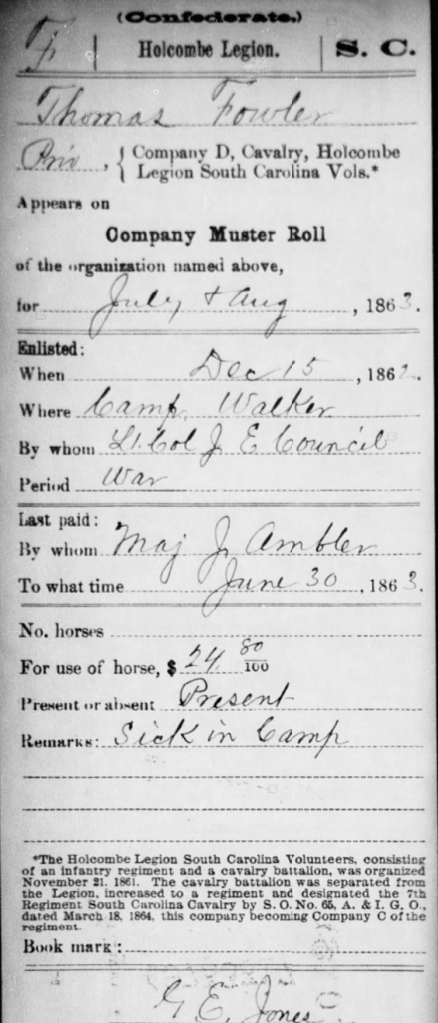 (Confederate.)
F | Holcombe Legion. | S. C.
Thomas Fowler
Priv, { Company D, Cavalry, Holcombe
Legion South Carolina Vols.*
Appears on
Company Muster Roll
of the organization named above,
for July & Aug, 1863.
Enlisted:
When Dec 15, 1862.
Where Camp Walker
By whom Lt. Col J E Council
Period War
Last paid:
By whom Maj J. Ambler
To what time June 30, 1863.
No. horses
For use of horse, $ 24 80/100
Present or absent Present
Remarks: Sick in Camp
*The Holcombe Legion South Carolina Volunteers, consisting
of an infantry regiment and a cavalry battalion, was organized
November 21, 1861. The cavalry battalion was separated from
the Legion, increased to a regiment and designated the 7th
Regiment South Carolina Cavalry by S. O. No. 65, A. & I. G. O.,
dated March 18, 1864, this company becoming Company C of the
regiment.
Book mark:
G E. Jones